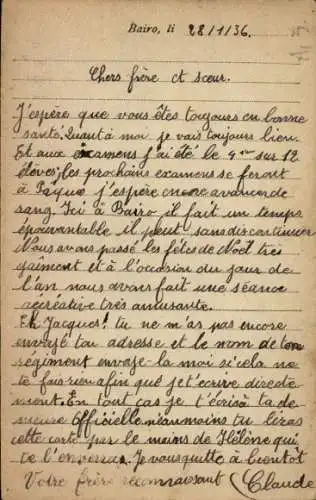 Bairo, li 28/1/36.
Chers frère et sœur.
J'espère que vous êtes toujours en bonne
santé. Quant à moi je vais toujours bien.
Et aux examens j'ai été le 4me sur 12
élèves, les prochains examens se feront
à Pâque j'espère encore avancer de
rang. Ici à Bairo il fait un temps
épouvantable il peut sans discontinuer
Nous avons passé les fêtes de Noël très
gaîment et à l'occasion du jour de
l'an nous avons fait une séance
récréative très amusante.
Eh Jacques! tu ne m'as pas encore
envoyé ton adresse et le nom de ton
régiment envoye-la moi si cela ne
te fait rien afin que je t'écrive directe
ment. En tout cas je t'écris à ta de-
meure officielle néanmoins tu liras
cette carte par le moins de Hélène qui
te l'enverra. Je vous quitte à bientôt
Votre frère reconnaissant Claude